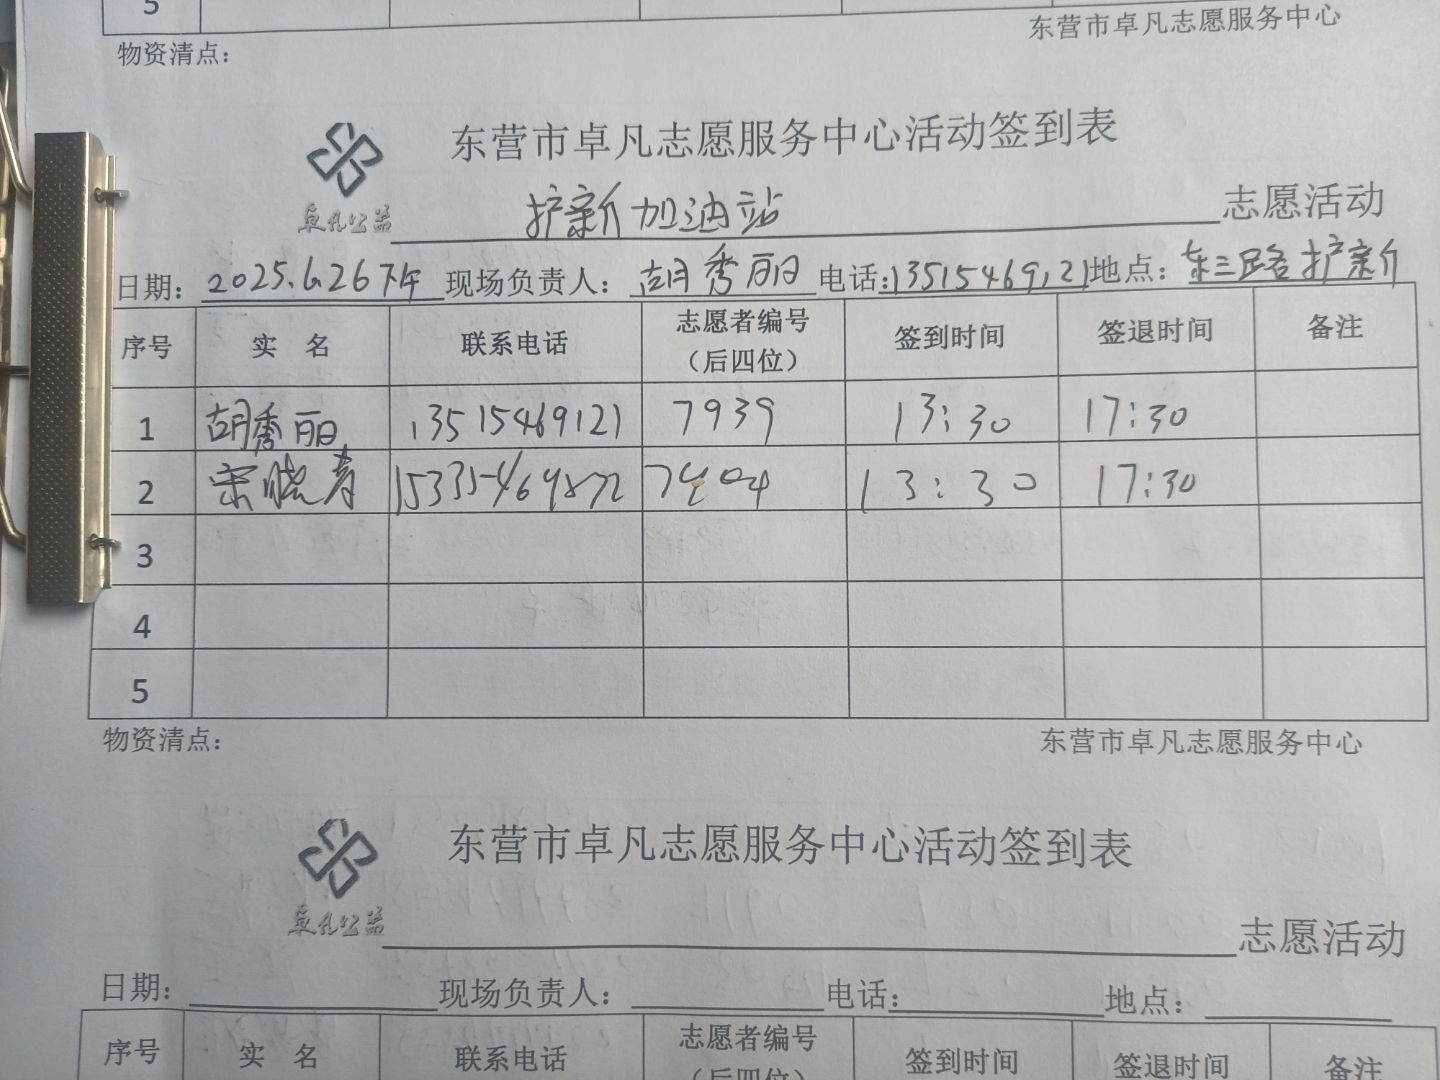 5
东营市卓凡志愿服务中心
物资清点：
东营市卓凡志愿服务中心活动签到表
卓凡公益
护新加油站 志愿活动
日期：2025.6.26下午 现场负责人：胡秀丽 电话：13515469121 地点：东三路护新
序号 实 名 联系电话 志愿者编号（后四位） 签到时间 签退时间 备注
1 胡秀丽 13515469121 7939 13:30 17:30
2 宋晓青 7404 13:30 17:30
3
4
5
物资清点： 东营市卓凡志愿服务中心
东营市卓凡志愿服务中心活动签到表
卓凡公益
志愿活动
日期： 现场负责人： 电话： 地点：
序号 实 名 联系电话 志愿者编号（后四位） 签到时间 签退时间 备注